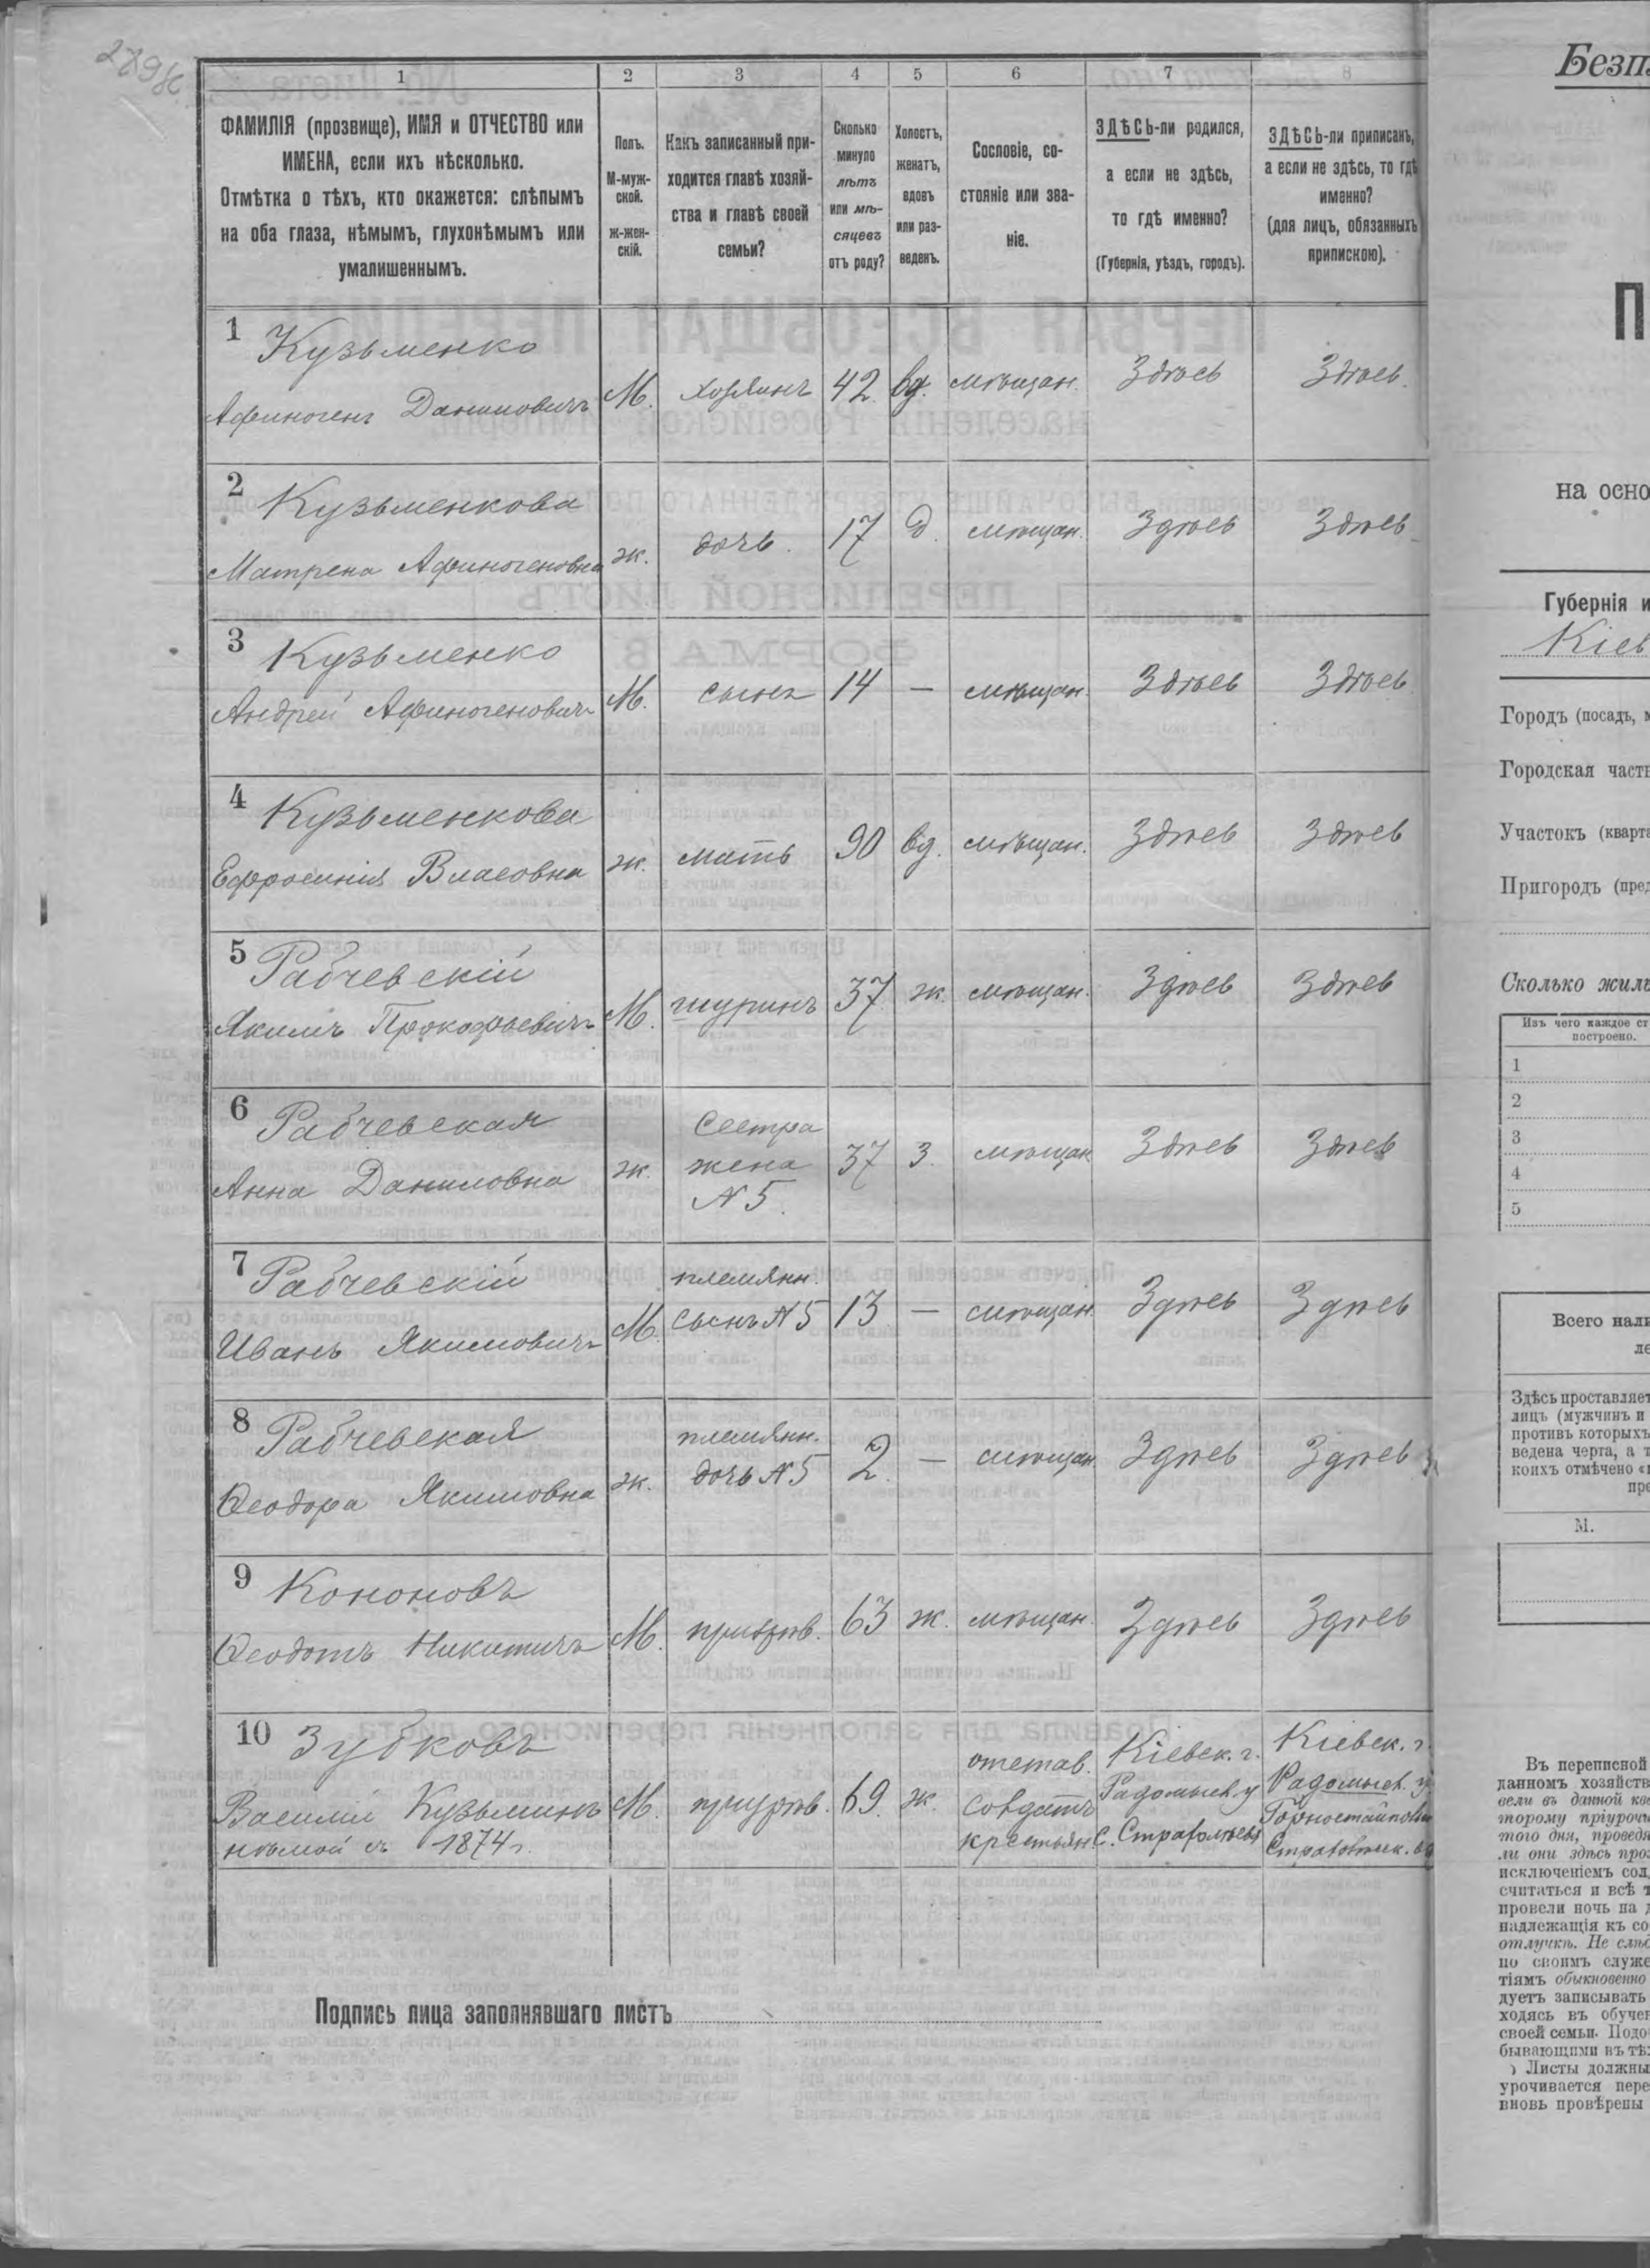 1 2 3 4 5 6 7 8
ФАМИЛІЯ (прозвище), ИМЯ и ОТЧЕСТВО или
ИМЕНА, если ихъ нѣсколько.
Отмѣтка о тѣхъ, кто окажется: слѣпымъ
на оба глаза, нѣмымъ, глухонѣмымъ или
умалишеннымъ.
Полъ.
М-муж-
ской.
ж-жен-
скій.
Какъ записанный при-
ходится главѣ хозяй-
ства и главѣ своей
семьи?
Сколько
минуло
лѣтъ
или мѣ-
сяцевъ
отъ роду?
Холостъ,
женатъ,
вдовъ
или раз-
веденъ.
Сословіе, со-
стояніе или зва-
ніе.
ЗДѢСЬ-ли родился,
а если не здѣсь,
то гдѣ именно?
(Губернія, уѣздъ, городъ).
ЗДѢСЬ-ли приписанъ,
а если не здѣсь, то гдѣ
именно?
(для лицъ, обязанныхъ
припискою).
1 Кузьменко
Афиногенъ Даниловичъ М. хозяинъ 42 вд. мѣщан. Здѣсь Здѣсь
2 Кузьменкова
Матрена Афиногеновна ж. дочь. 17 д. мѣщан. Здѣсь Здѣсь
3 Кузьменко
Андрей Афиногеновичъ М. сынъ 14 — мѣщан. Здѣсь Здѣсь
4 Кузьменкова
Ефросинія Власовна ж. мать 90 вд. мѣщан. Здѣсь Здѣсь
5 Рабчевскій
Якимъ Прокофьевичъ М. шуринъ 37 ж. мѣщан. Здѣсь Здѣсь
6 Рабчевская
Анна Даниловна ж. Сестра
жена
N 5. 37 З. мѣщан. Здѣсь Здѣсь
7 Рабчевскій
Иванъ Якимовичъ М. племянн.
сынъ N 5 13 — мѣщан. Здѣсь Здѣсь
8 Рабчевская
Ѳеодора Якимовна ж. племянн.
дочь N 5 2. — мѣщан. Здѣсь Здѣсь
9 Кононовъ
Ѳеодотъ Никитичъ М. 63 ж. мѣщан. Здѣсь Здѣсь
10 Зубковъ
Василій Кузьминъ М. 69. ж.
нѣмой съ 1874 г.
отстав.
солдатъ
крестьян.
Кіевск. г.
Радомысл. у
Кіевск. г.
Радомысл. у
Подпись лица заполнявшаго листъ
на осно
Губернія и
Кіев
Городъ (посадъ, м
Городская часть
Участокъ (кварта
Пригородъ (пред
Сколько жилы
Изъ чего каждое ст
построено.
1
2
3
4
5
Всего нали
ле
Здѣсь проставляет
лицъ (мужчинъ и
противъ которыхъ
ведена черта, а т
коихъ отмѣчено «
пре
М.
Въ переписной
данномъ хозяйств
вели въ данной кв
торому пріуроч
того дня, проведя
ли они здѣсь про
исключеніемъ сол
считаться и всѣ т
провели ночь на д
надлежащія къ со
отлучкѣ. Не слѣд
по своимъ служе
тіямъ обыкновенно
дуетъ записывать
ходясь въ обучен
своей семьи. Подо
бывающими въ тѣ
) Листы должны
урочивается пере
вновь провѣрены